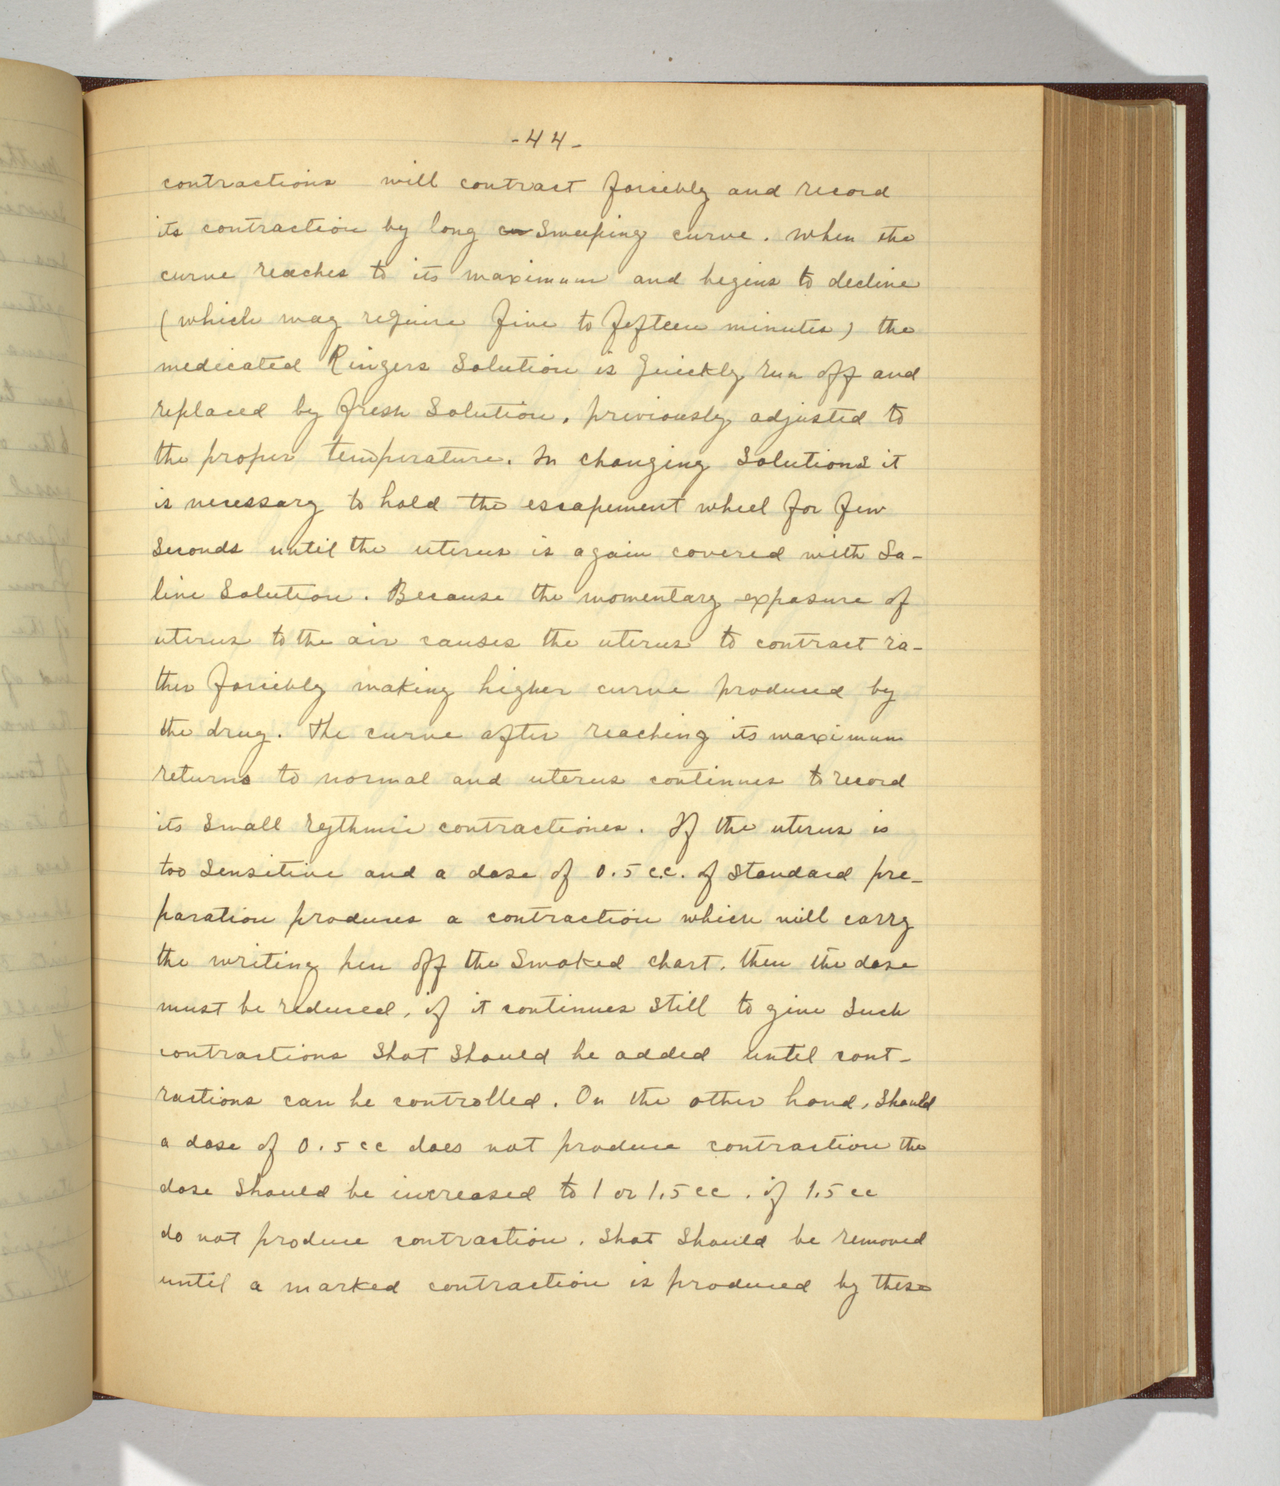 -44-
contractions will contract forcibly and record
its contraction by long sweeping curve. When the
curve reaches to its maximum and begins to decline
(which may require five to fifteen minutes) the
medicated Ringers Solution is quickly run off and
replaced by fresh Solution, previously adjusted to
the proper temperature. In changing Solutions it
is necessary to hold the escapement wheel for few
Seconds until the uterus is again covered with Sa-
line Solution. Because the momentary exposure of
uterus to the air causes the uterus to contract ra-
ther forcibly making higher curve produced by
the drug. The curve after reaching its maximum
returns to normal and uterus continues to record
its Small rythmic contractiones. If the uterus is
too Sensitive and a dose of 0.5 c.c. of Standard pre-
paration produces a contraction which will carry
the writing pen off the Smoked chart, then the dose
must be reduced, if it continues still to give Such
contractions Shot Should be added until cont-
ractions can be controlled. On the other hand, Should
a dose of 0.5 cc does not produce contraction the
dose Should be increased to 1 or 1.5 cc. if 1.5 cc
do not produce contraction. Shot Should be removed
until a marked contraction is produced by these